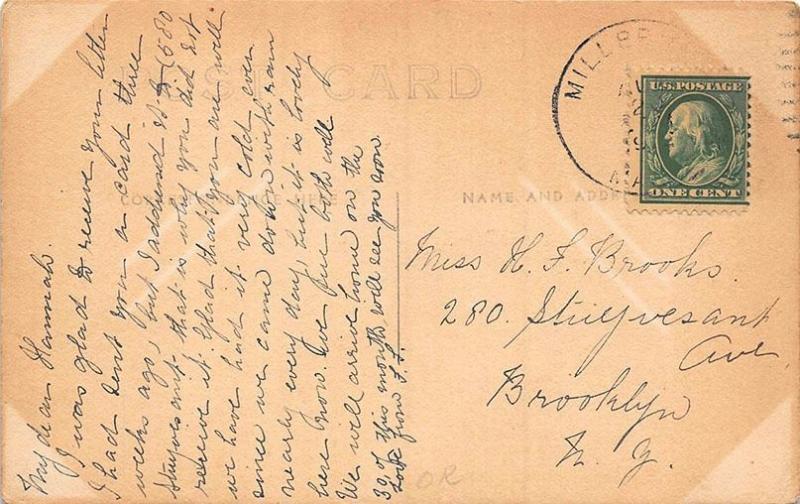 POST CARD
MILLBR
U.S. POSTAGE
ONE CENT
NAME AND ADDRE
Miss H. F. Brooks.
280. Stuyvesant
Ave
Brooklyn
N. Y.
My dear Hannah.
I was glad to receive your letter
I had sent you a card three
weeks ago, but I addressed it to (580
Stuyvesant that is why you did not
receive it. Glad that you are well
we have had it very cold ever
since we came down with rain
nearly every day, but it is lovely
here now. We are both well
We will arrive home on the
of this month will see you soon.
Love from
OR